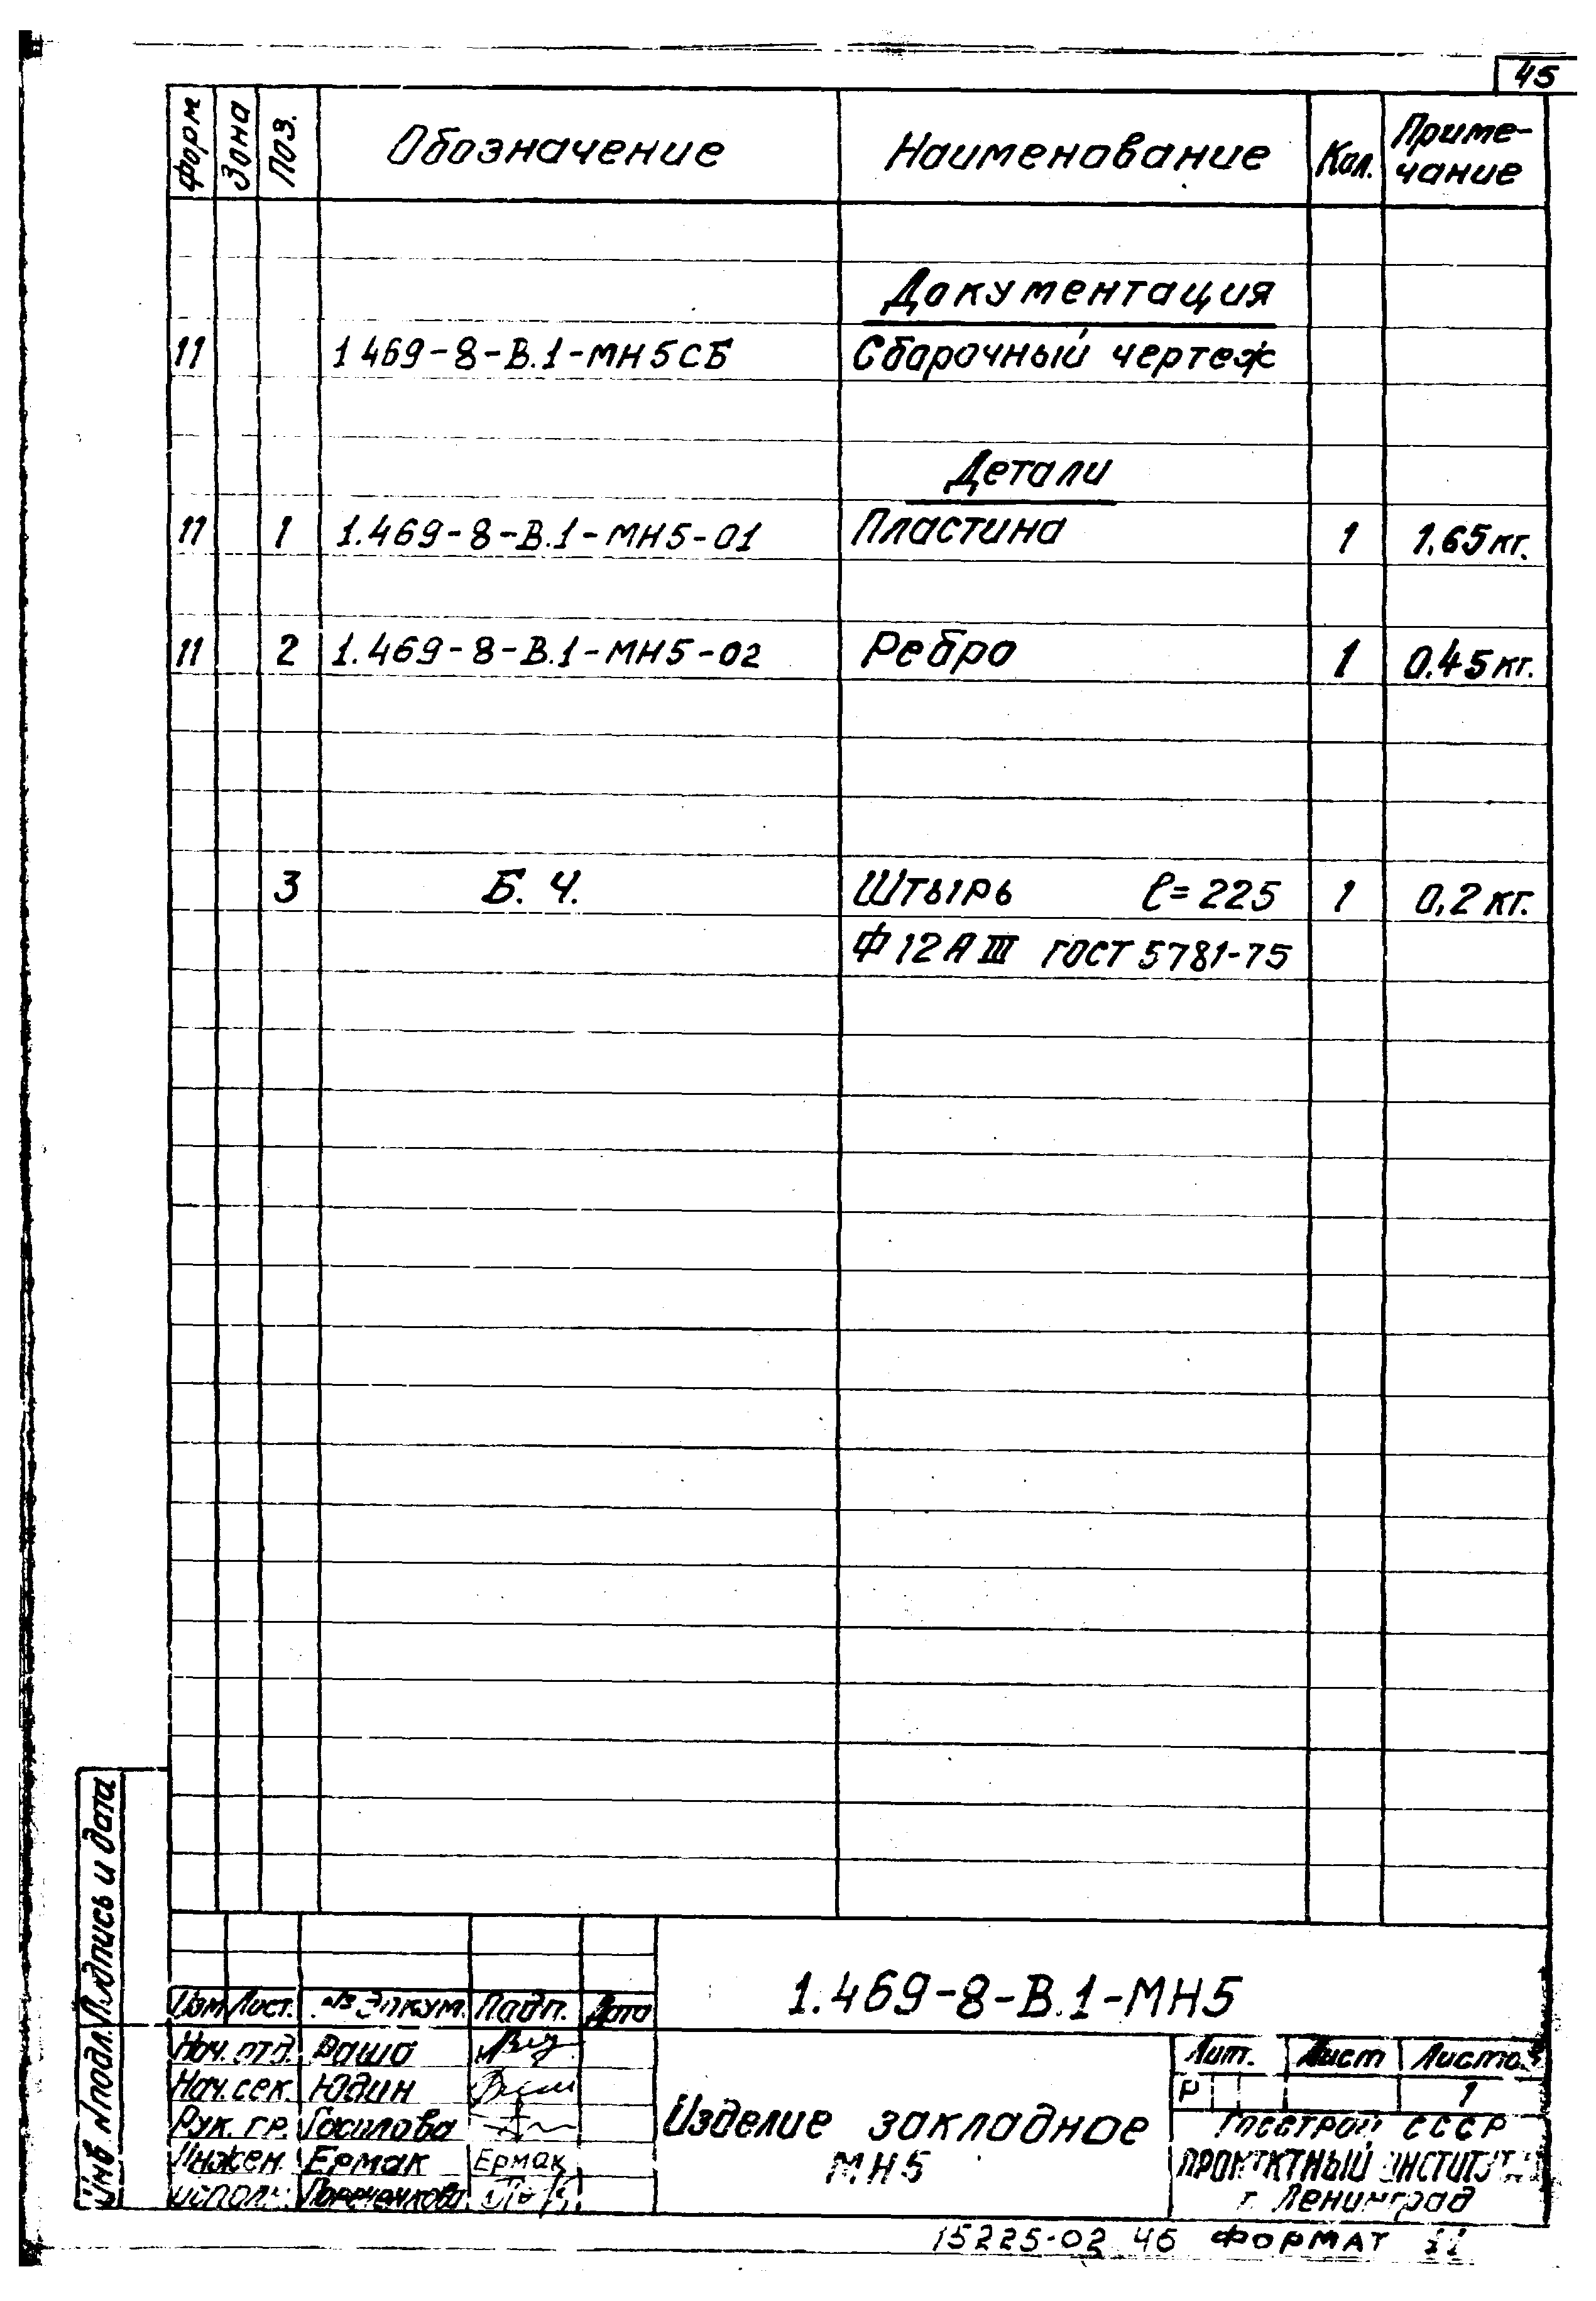 45
Форм Зона Поз. Обозначение Наименование Кол. Приме-
чание
Документация
11 1 469-8-В.1-МН5СБ Сборочный чертеж
Детали
11 1 1.469-8-В.1-МН5-01 Пластина 1 1.65кг.
11 2 1.469-8-В.1-МН5-02 Ребро 1 0.45кг.
3 Б. Ч. Штырь ℓ=225 1 0,2кг.
Ф12АIII ГОСТ 5781-75
Подпись и дата
Инв №подл.
1.469-8-В.1-МН5
Изм Лист. №докум. Подп. Дата
Нач. отд. Раша
Нач. сек. Юдин
Рук. гр.
Инжен. Ермак Ермак
исполн.
Изделие закладное
МН5
Лит. Лист Листов
Р 1
Госстрой СССР
ПРОЕКТНЫЙ ИНСТИТУТ
г. Ленинград
15225-02 46 ФОРМАТ 11